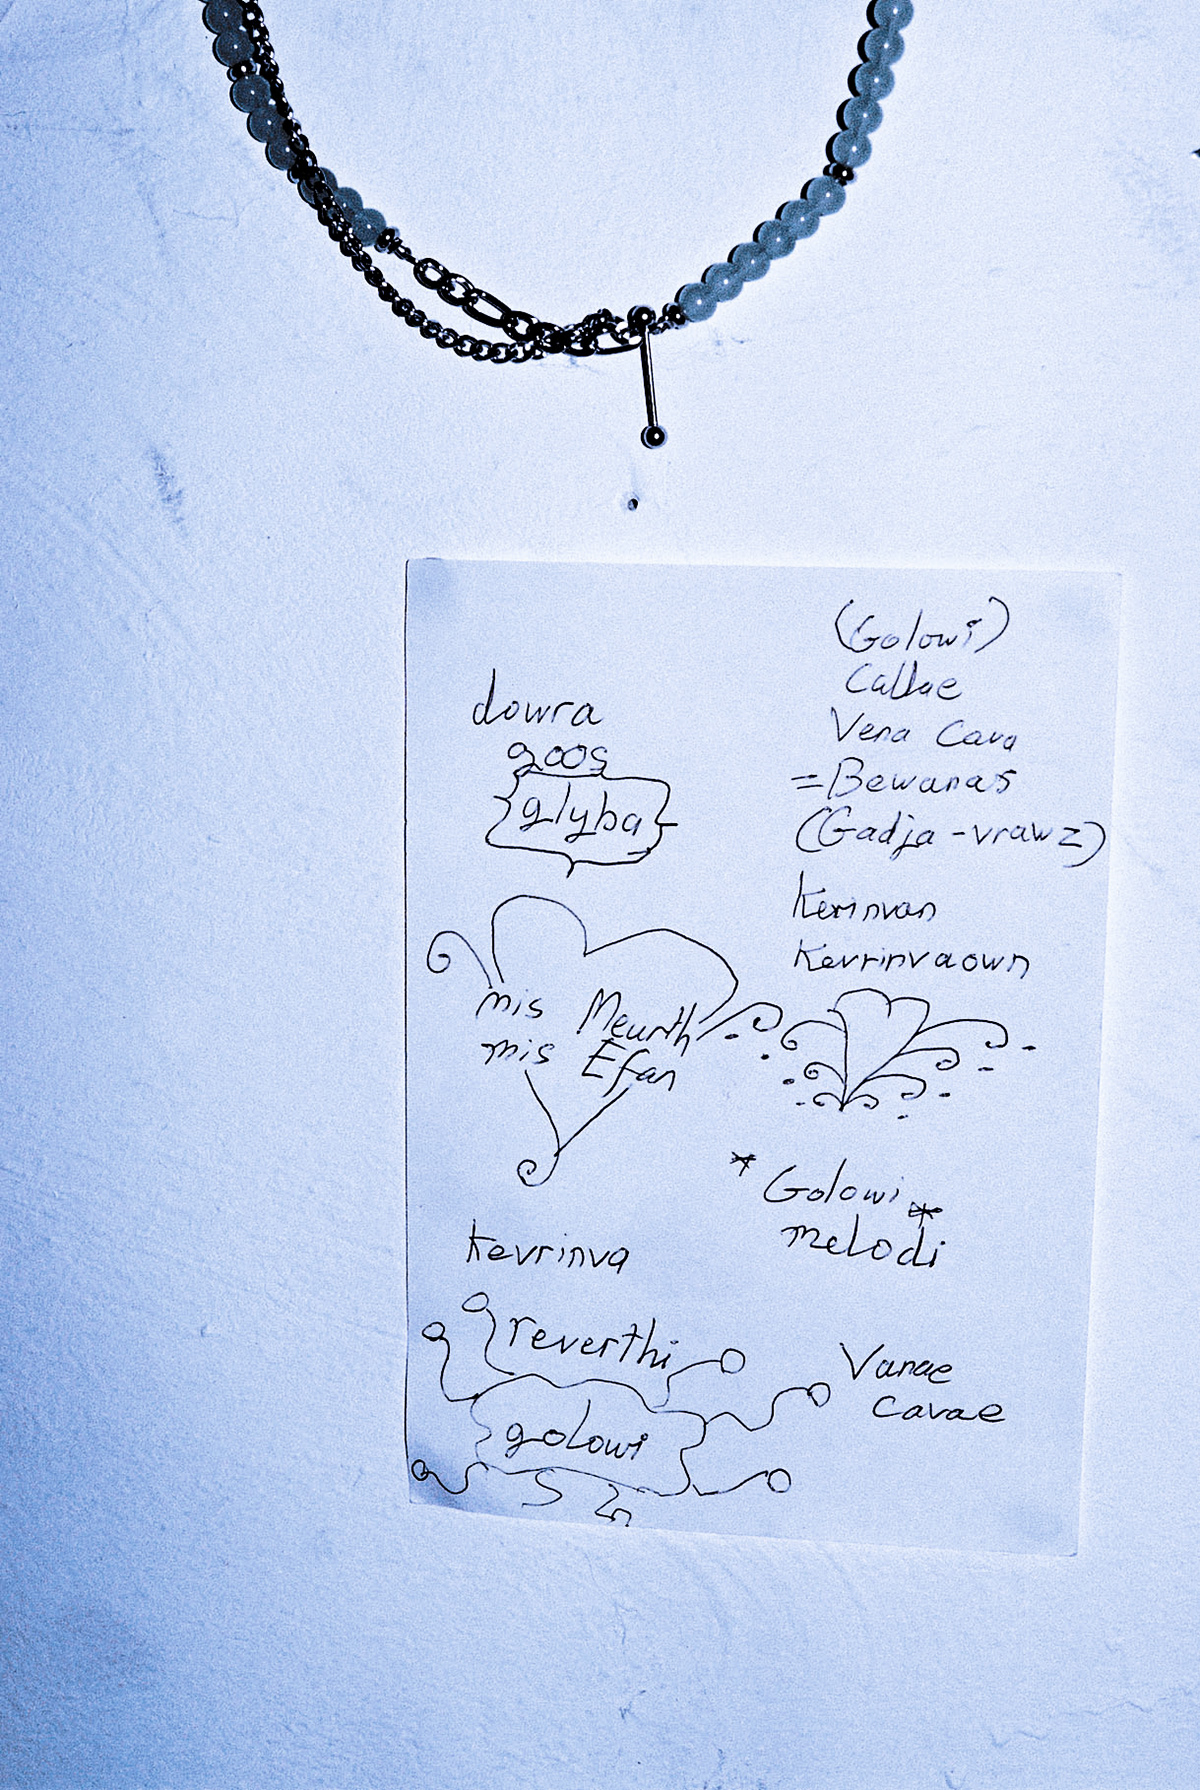 dowra
goos
glyba
mis Meurth
mis Efan
Kevrinva
reverthi
golowi
(Golowi)
Callae
Vena Cava
=Bewanas
(Gadja-vrawz)
Kevrinvaown
*Golowi*
melodi
Vanae
Cavae